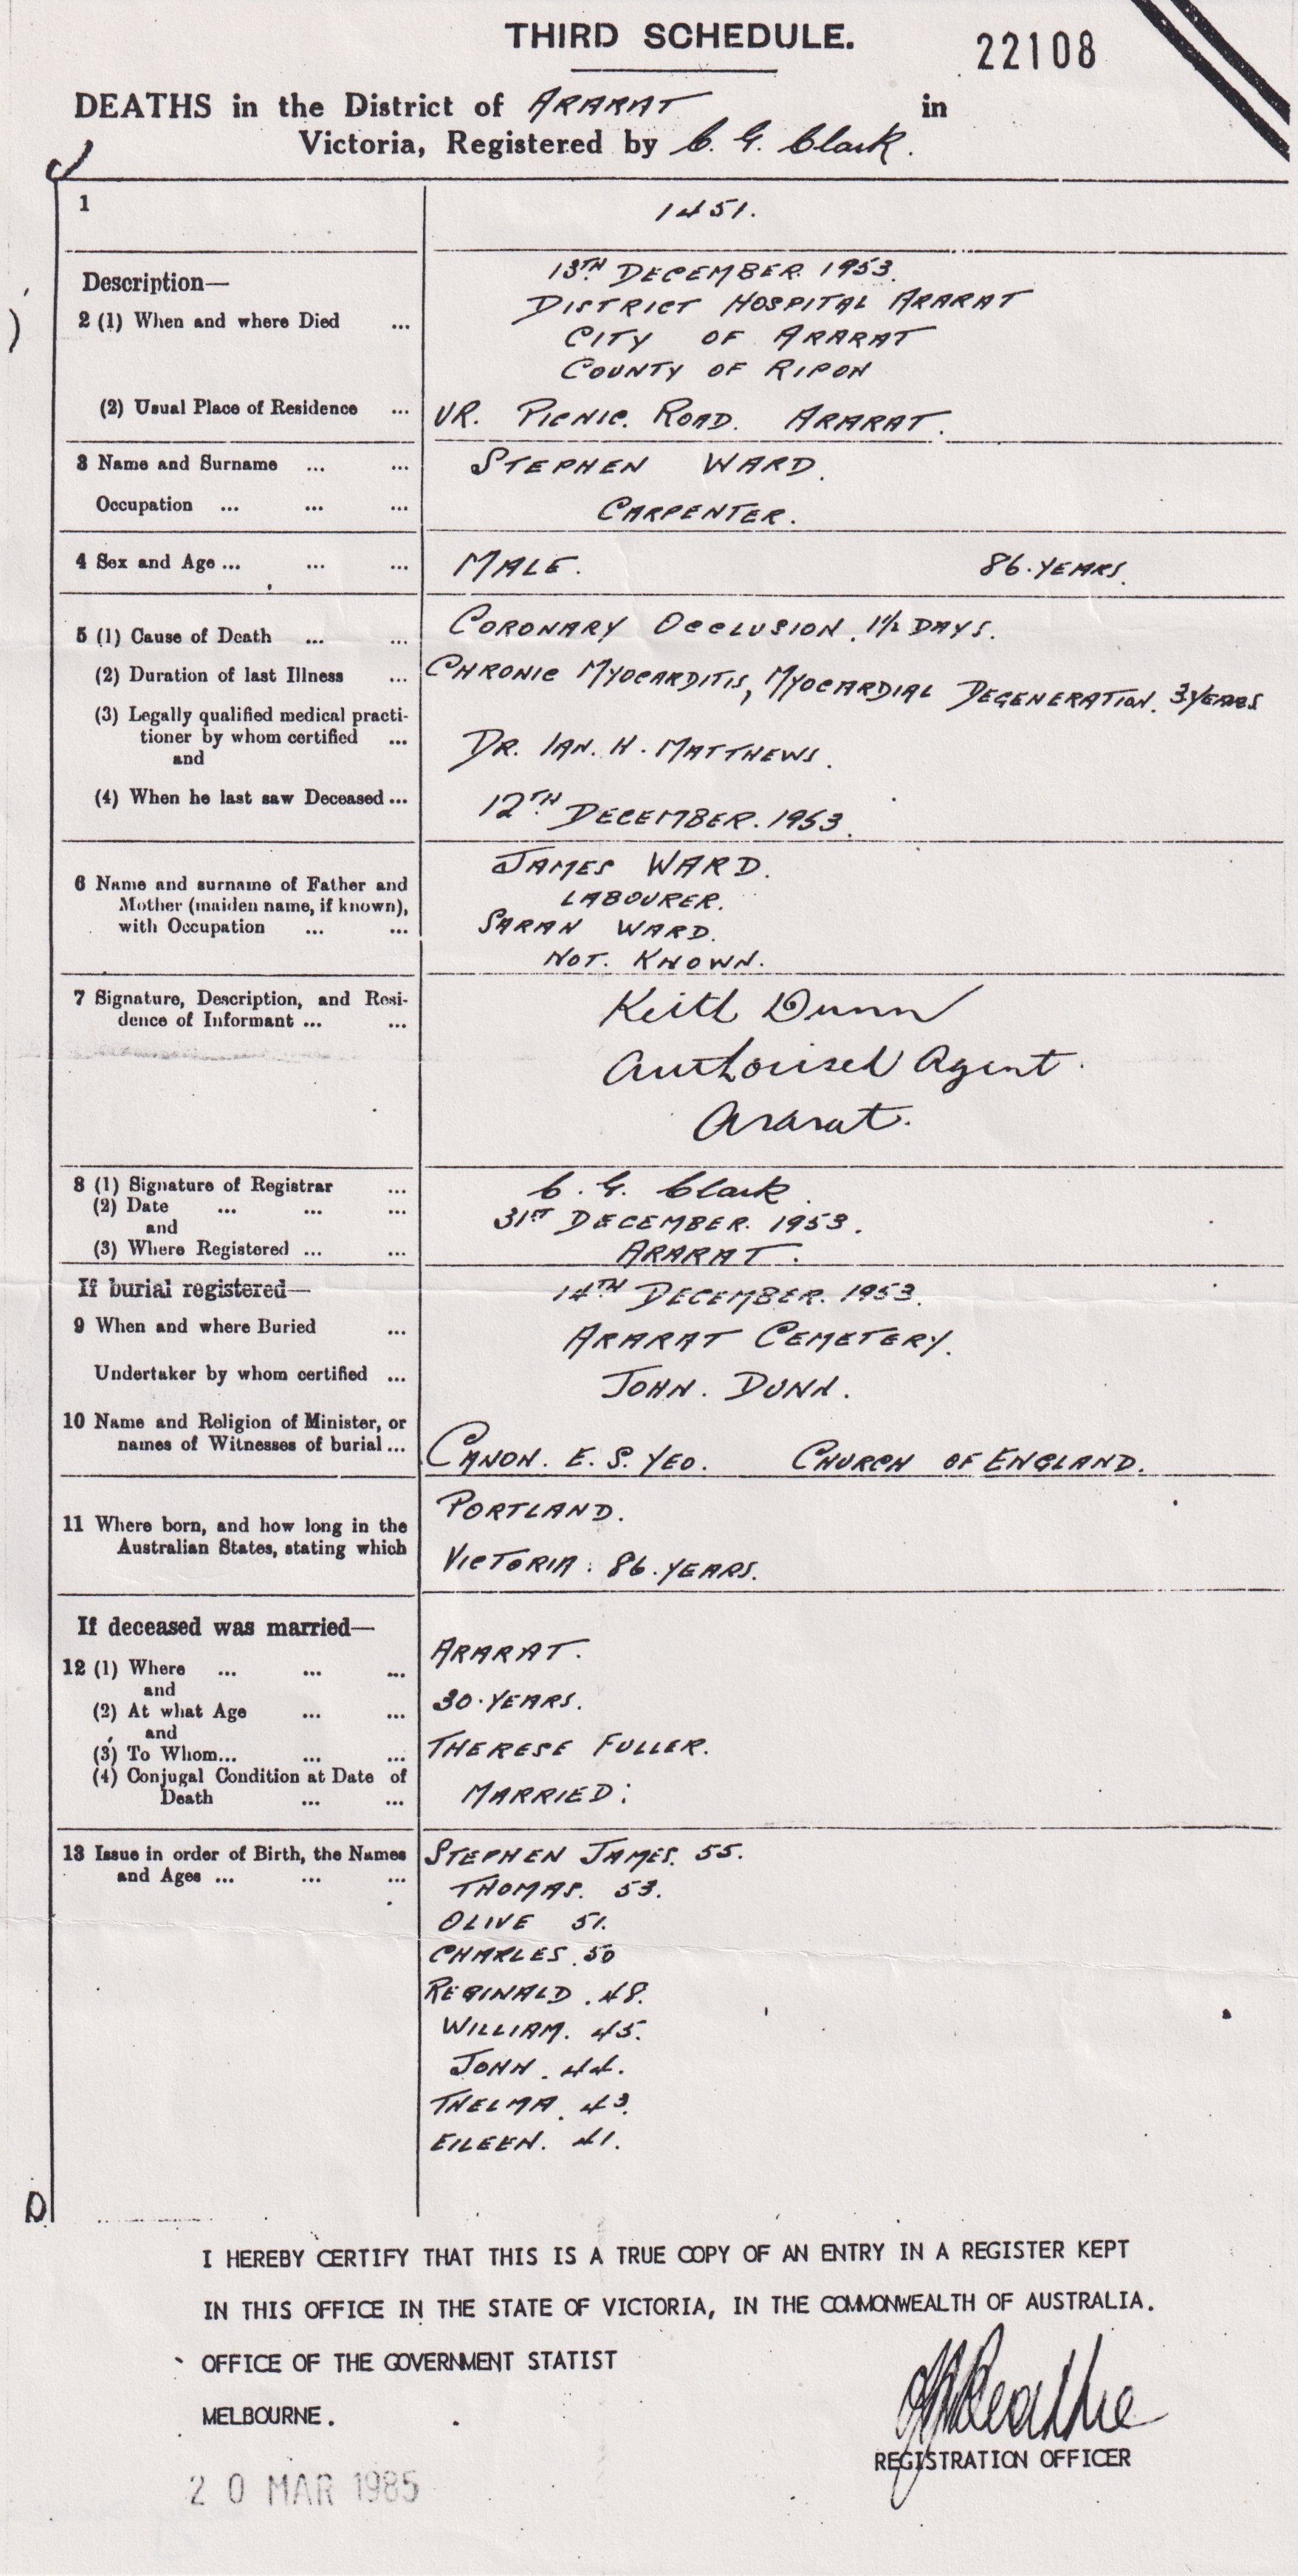 THIRD SCHEDULE.
22108
DEATHS in the District of ARARAT in
Victoria, Registered by C. G. Clark.
1
1451.
Description—
2 (1) When and where Died ...
13TH DECEMBER. 1953.
DISTRICT HOSPITAL ARARAT
CITY OF ARARAT
COUNTY OF RIPON
(2) Usual Place of Residence ... VR. PICNIC. ROAD. ARARAT.
3 Name and Surname ... ... STEPHEN WARD.
Occupation ... ... ... CARPENTER.
4 Sex and Age ... ... ... MALE. 86. YEARS.
5 (1) Cause of Death ... ... CORONARY OCCLUSION. 1½ DAYS.
(2) Duration of last Illness ... CHRONIC MYOCARDITIS, MYOCARDIAL DEGENERATION. 3 YEARS
(3) Legally qualified medical practi-
tioner by whom certified ... DR. IAN. H. MATTHEWS.
and
(4) When he last saw Deceased ... 12TH DECEMBER. 1953.
6 Name and surname of Father and
Mother (maiden name, if known),
with Occupation ... ...
JAMES WARD.
LABOURER.
SARAH WARD.
NOT. KNOWN.
7 Signature, Description, and Resi-
dence of Informant ... ...
Keith Dunn
Authorised Agent.
Ararat.
8 (1) Signature of Registrar ... C. G. Clark.
(2) Date ... ... ... 31ST DECEMBER. 1953.
and
(3) Where Registered ... ... ARARAT.
If burial registered—
9 When and where Buried ...
14TH DECEMBER. 1953.
ARARAT CEMETERY.
Undertaker by whom certified ... JOHN. DUNN.
10 Name and Religion of Minister, or
names of Witnesses of burial ... CANON. E. S. YEO. CHURCH OF ENGLAND.
11 Where born, and how long in the
Australian States, stating which
PORTLAND.
VICTORIA: 86. YEARS.
If deceased was married—
12 (1) Where ... ... ... ARARAT.
and
(2) At what Age ... ... 30. YEARS.
and
(3) To Whom... ... ... THERESE FULLER.
(4) Conjugal Condition at Date of
Death ... ... MARRIED:
13 Issue in order of Birth, the Names
and Ages ... ... ...
STEPHEN JAMES. 55.
THOMAS. 53.
OLIVE 51.
CHARLES. 50
REGINALD. 48.
WILLIAM. 45.
JOHN. 44.
THELMA. 43.
EILEEN. 41.
D
I HEREBY CERTIFY THAT THIS IS A TRUE COPY OF AN ENTRY IN A REGISTER KEPT
IN THIS OFFICE IN THE STATE OF VICTORIA, IN THE COMMONWEALTH OF AUSTRALIA.
OFFICE OF THE GOVERNMENT STATIST
MELBOURNE.
REGISTRATION OFFICER
20 MAR 1985